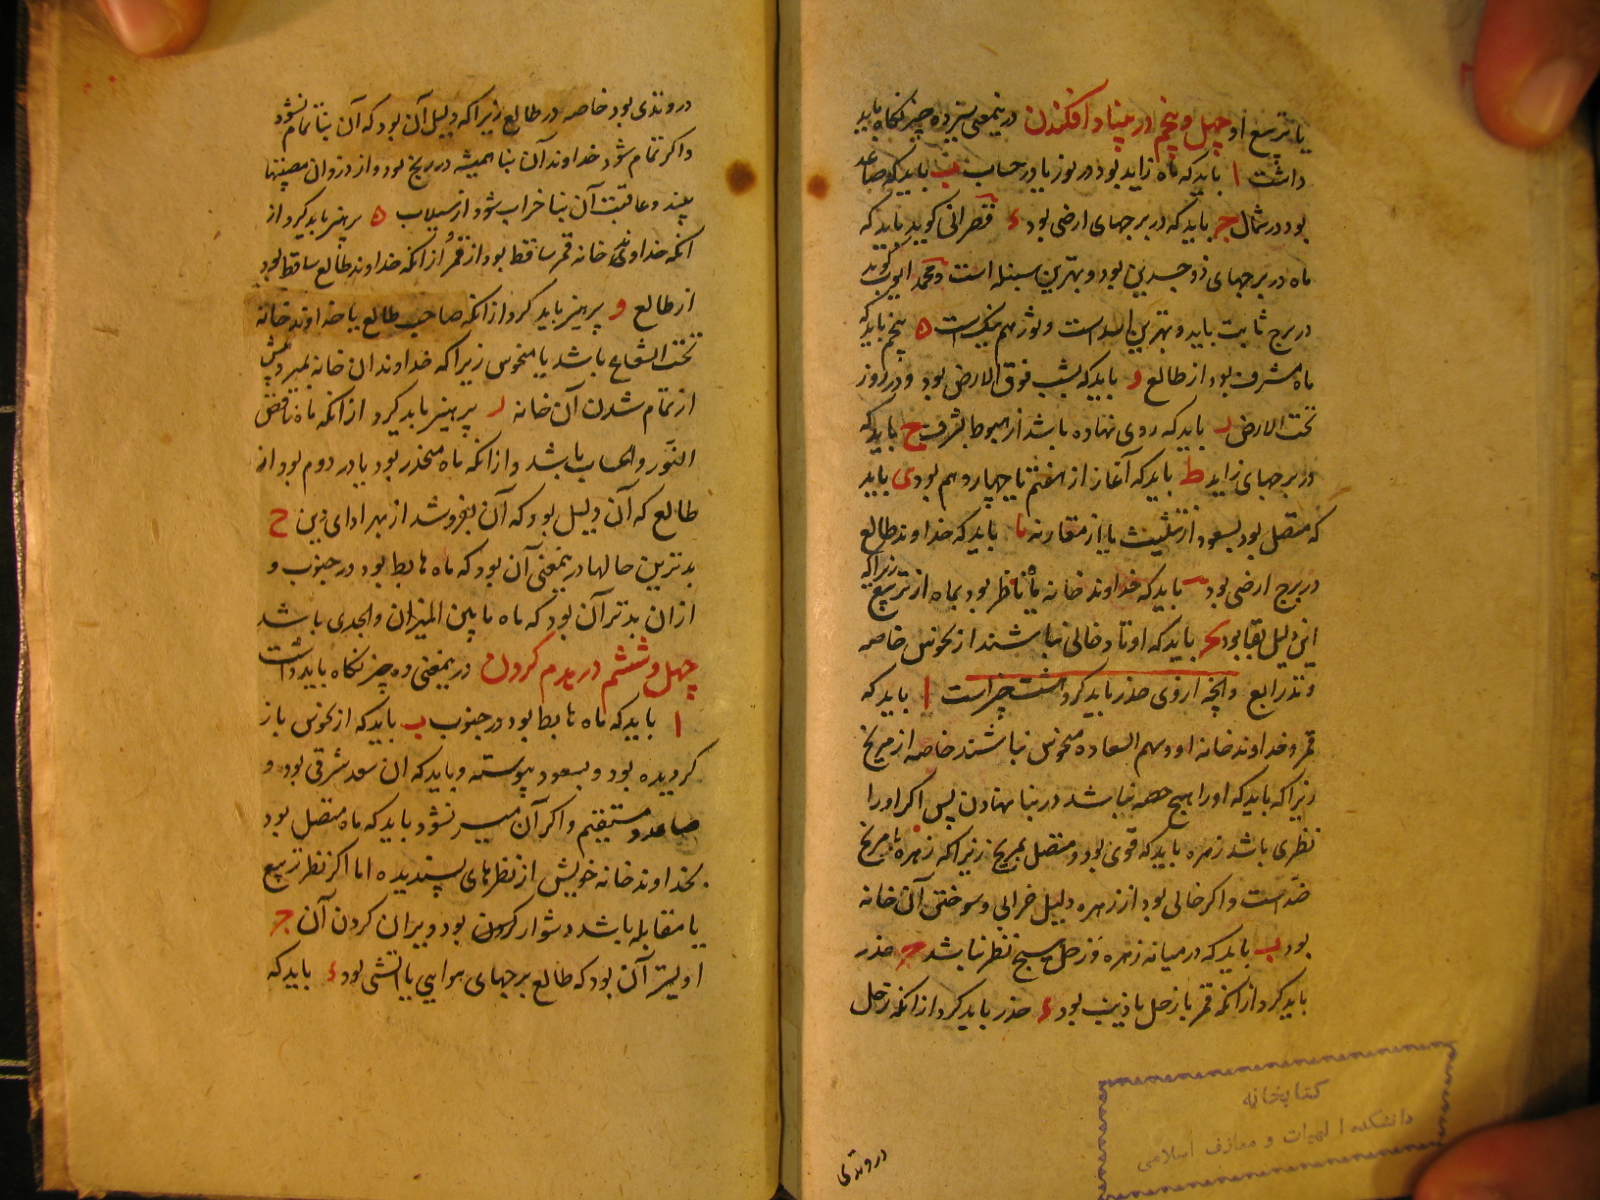 یا تربیع او چهل و پنجم در بنیاد افکندن درینمعنی سیزده چیز نکاه باید
داشت ا باید که ماه زاید بود در نور یا در حساب ب باید که صاعد
بود در شمال ج باید که در برجهای ارضی بود ء قصرانی کوید باید که
ماه در برجهای ذو جسدین بود و بهترین سنبله است و محمد ایوب کوید
در برج ثابت باید و بهترین اسد است و ثور هم نیک است ه پنجم باید که
ماه مشرف بود از طالع و باید که بشب فوق الارض بود و در روز
تحت الارض ر باید که روی نهاده باشد از هبوط بشرف ح باید که
در برجهای زاید ط باید که آغاز از هفتم تا چهاردهم بود ی باید
که متصل بود بسعود از تثلیث یا از مقارنه یا باید که خداوند طالع
در برج ارضی بود یب باید که خداوند خانه ماه ناظر بود بماه از تربیع زیرا که
این دلیل بقا بود یج باید که اوتاد خالی باشند از نحوس خاصه
وتد رابع وانچه ازوی حذر باید کرد هشت چیز است ا باید که
قمر و خداوند خانه او و سهم السعاده منحوس نباشند خاصه از مریخ
زیرا که باید که او را هیچ حصه نباشد در بنا نهادن پس اکر او را
نظری باشد زهره باید که قوی بود و متصل بمریخ زیرا که زهره با مریخ
ضد است و اکر خالی بود از زهره دلیل خرابی و سوختن آن خانه
بود ب باید که در میانه زهره و زحل هیچ نظر نباشد ج حذر
باید کرد از انکه قمر با زحل یا ذنب بود ء حذر باید کرد از انکه زحل
در وتدی
کتابخانه
دانشکده الهیات و معارف اسلامی
در وتدی بود خاصه در طالع زیرا که دلیل آن بود که آن بنا تمام نشود
و اکر تمام شود خداوند آن بنا همیشه در رنج بود و از دزدان مصیبتها
بیند و عاقبت آن بنا خراب شود از سیلاب ه پرهیز باید کرد از
انکه خداوند خانه قمر ساقط بود از قمر و از انکه خداوند طالع ساقط بود
از طالع و پرهیز باید کرد از انکه صاحب طالع یا خداوند خانه
تحت الشعاع باشد یا منحوس زیرا که خداوند ان خانه بمیرد پیش
از تمام شدن آن خانه ر پرهیز باید کرد از انکه ماه ناقص
النور والحساب باشد و از انکه ماه منحدر بود یا در دوم بود از
طالع که آن دلیل بود که آن بفروشد از بهر ادای دین ح
بدترین حالها درینمعنی آن بود که ماه هابط بود در جنوب و
ازان بدتر آن بود که ماه ما بین المیزان والجدی باشد
چهل و ششم در هدم کردن درینمعنی ده چیز نکاه باید داشت
ا باید که ماه هابط بود در جنوب ب باید که از نحوس باز
کردیده بود و بسعود پیوسته و باید که ان سعد شرقی بود و
صاعد و مستقیم و اکر آن میسر نشود باید که ماه متصل بود
بخداوند خانه خویش از نظرهای پسندیده اما اکر نظر تربیع
یا مقابله باشد دشوار کردن بود ویران کردن آن ج
اولیتر آن بود که طالع برجهای هوایی یا اتشی بود ء باید که